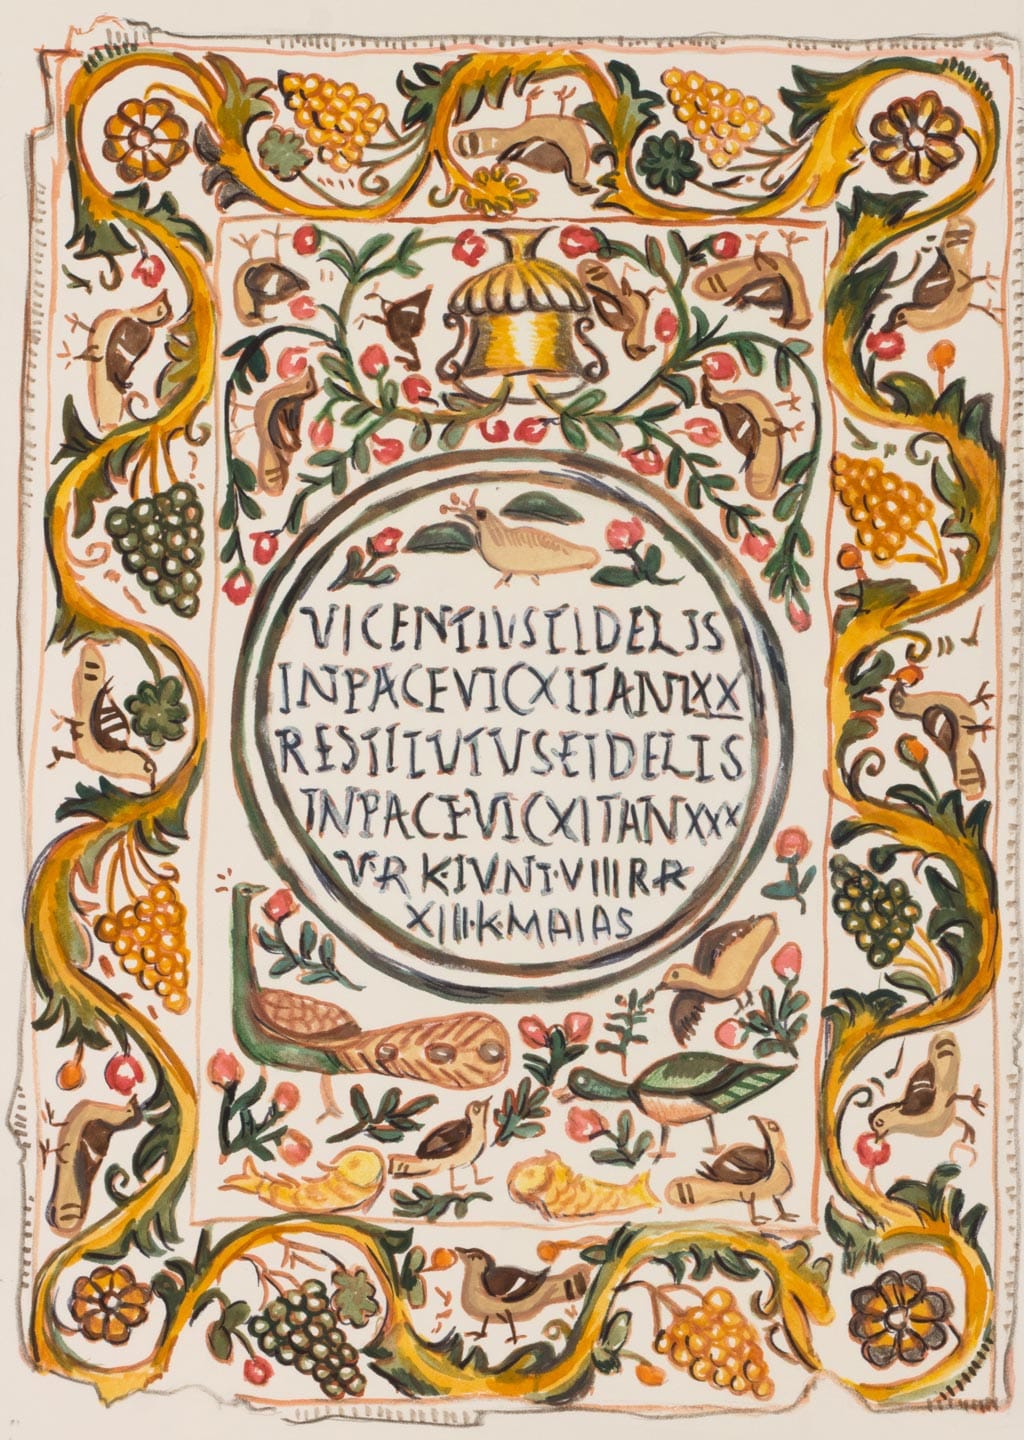 VICENTIUSFIDELIS
INPACEVICXITANXX
RESTITUTUSFIDELIS
INPACEVICXITANXXX
V·R K·IVNI·VIIIRR
XIII·K·MAIAS